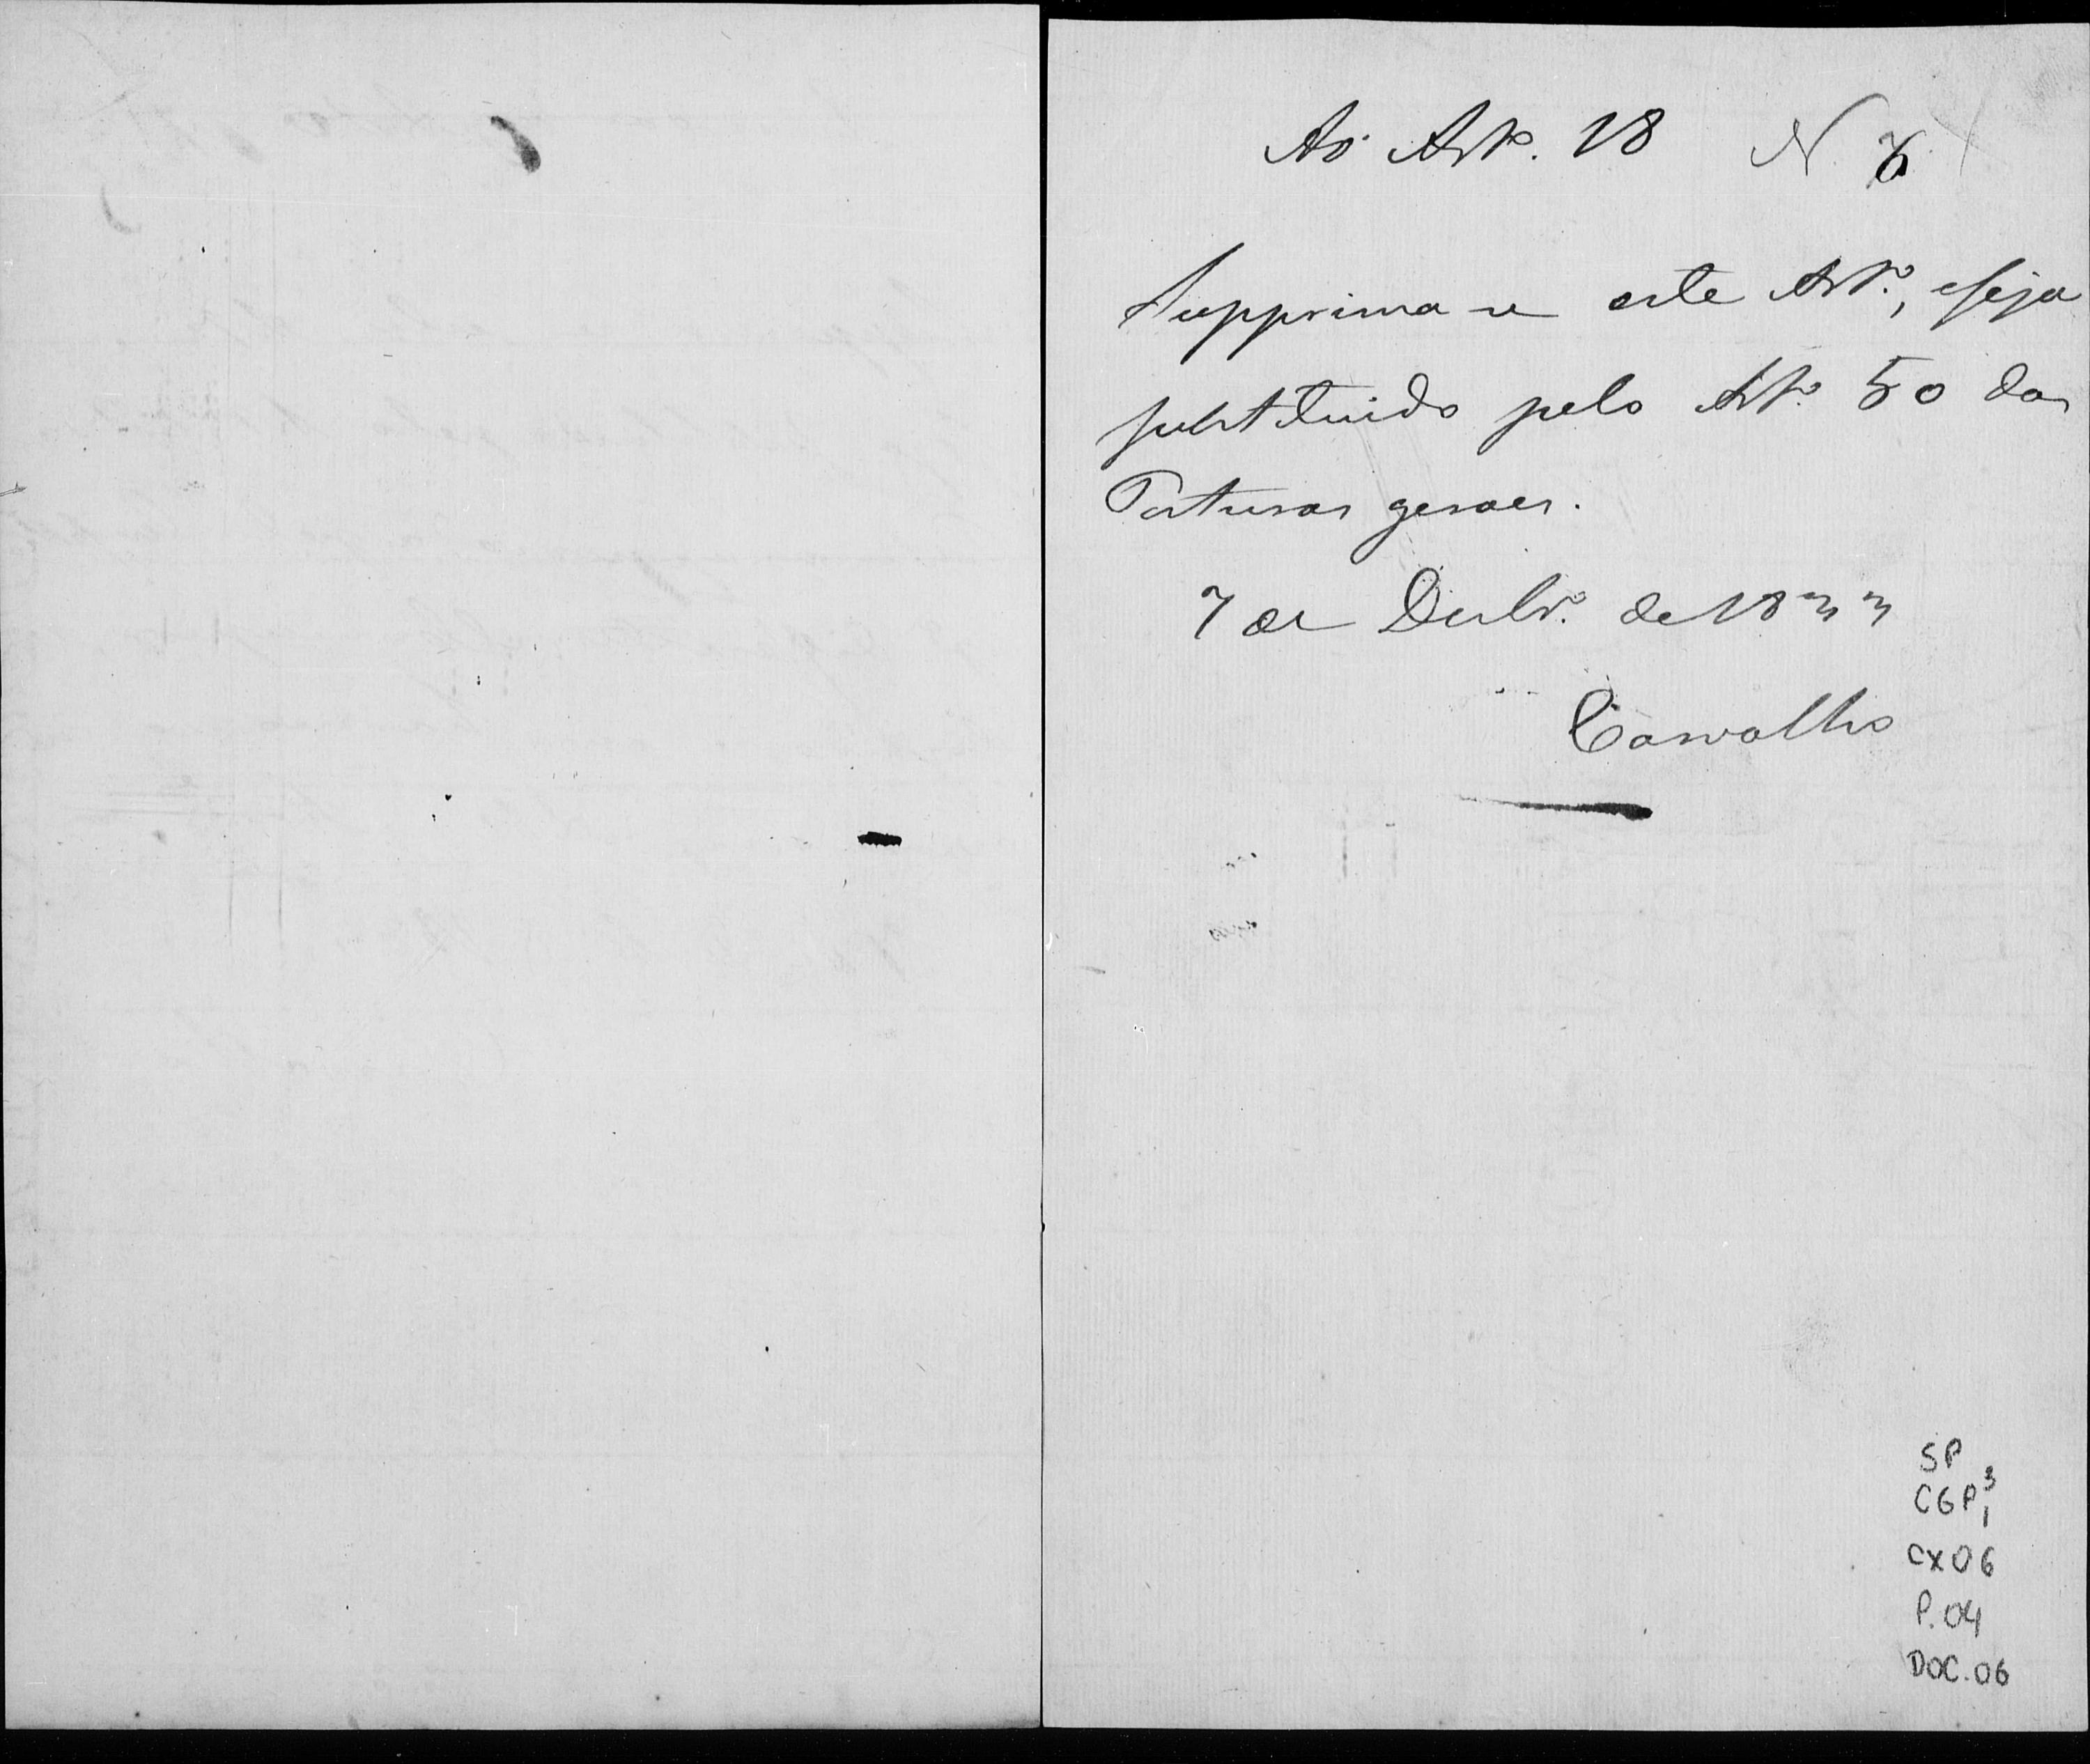 Ao Artº. 18 N. 6
Supprima-se este Artº., e seja
substituido pelo Artº. 50 das
Posturas geraes.
7 de Dezbrº. de 1833
Carvalho
SP
CGP 3
1
CX06
P.04
DOC.06